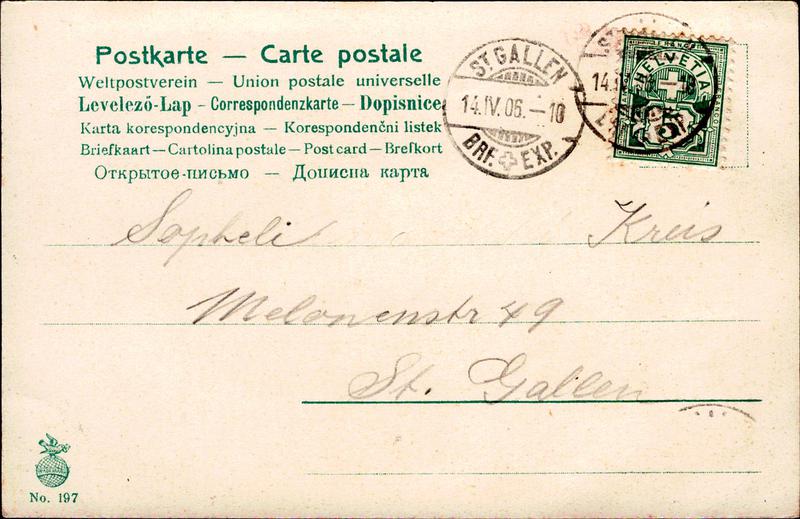 Postkarte — Carte postale
Weltpostverein — Union postale universelle
Levelező-Lap – Correspondenzkarte – Dopisnice
Karta korespondencyjna — Korespondenční listek
Briefkaart — Cartolina postale — Post card — Brefkort
Открытое письмо — Дописна карта
ST. GALLEN
14.IV.06. – 10
BRF. EXP.
14.IV
FRANCO
HELVETIA
5
Sopheli Kreis
Melonenstr 49
St. Gallen
No. 197